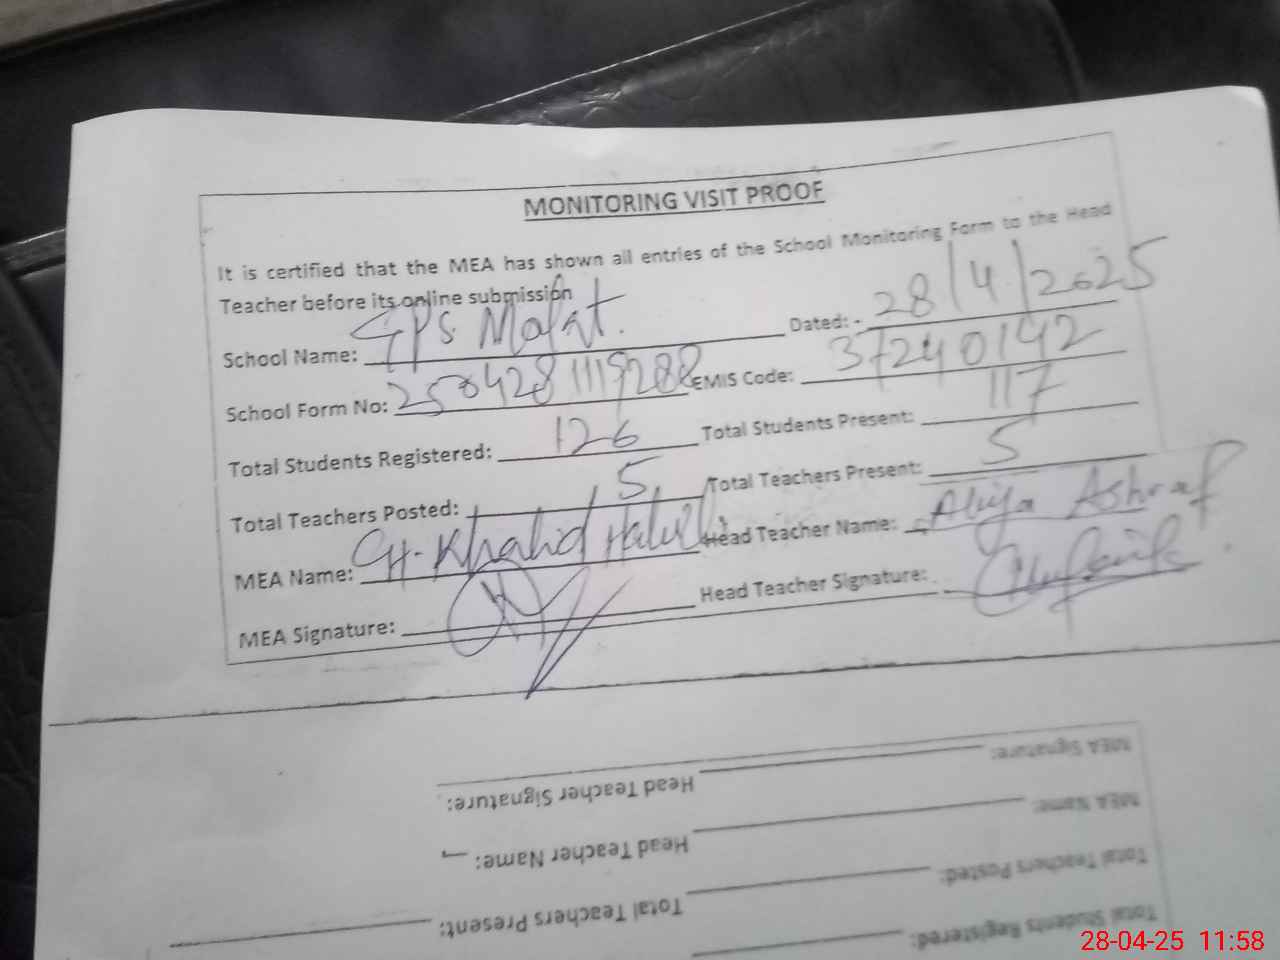 MONITORING VISIT PROOF
It is certified that the MEA has shown all entries of the School Monitoring Form to the Head
Teacher before its online submission
School Name: GPS Dated: - 28/4/2025
School Form No: 2504281119288 EMIS Code: 37240142
Total Students Registered: 126 Total Students Present: 117
Total Teachers Posted: 5 Total Teachers Present: 5
MEA Name: CH. Khalid Head Teacher Name: Aliya Ashraf
MEA Signature: Head Teacher Signature:
MEA Signature: Head Teacher Signature:
MEA Name: Head Teacher Name:
Total Teachers Posted: Total Teachers Present:
Total Students Registered:
28-04-25 11:58